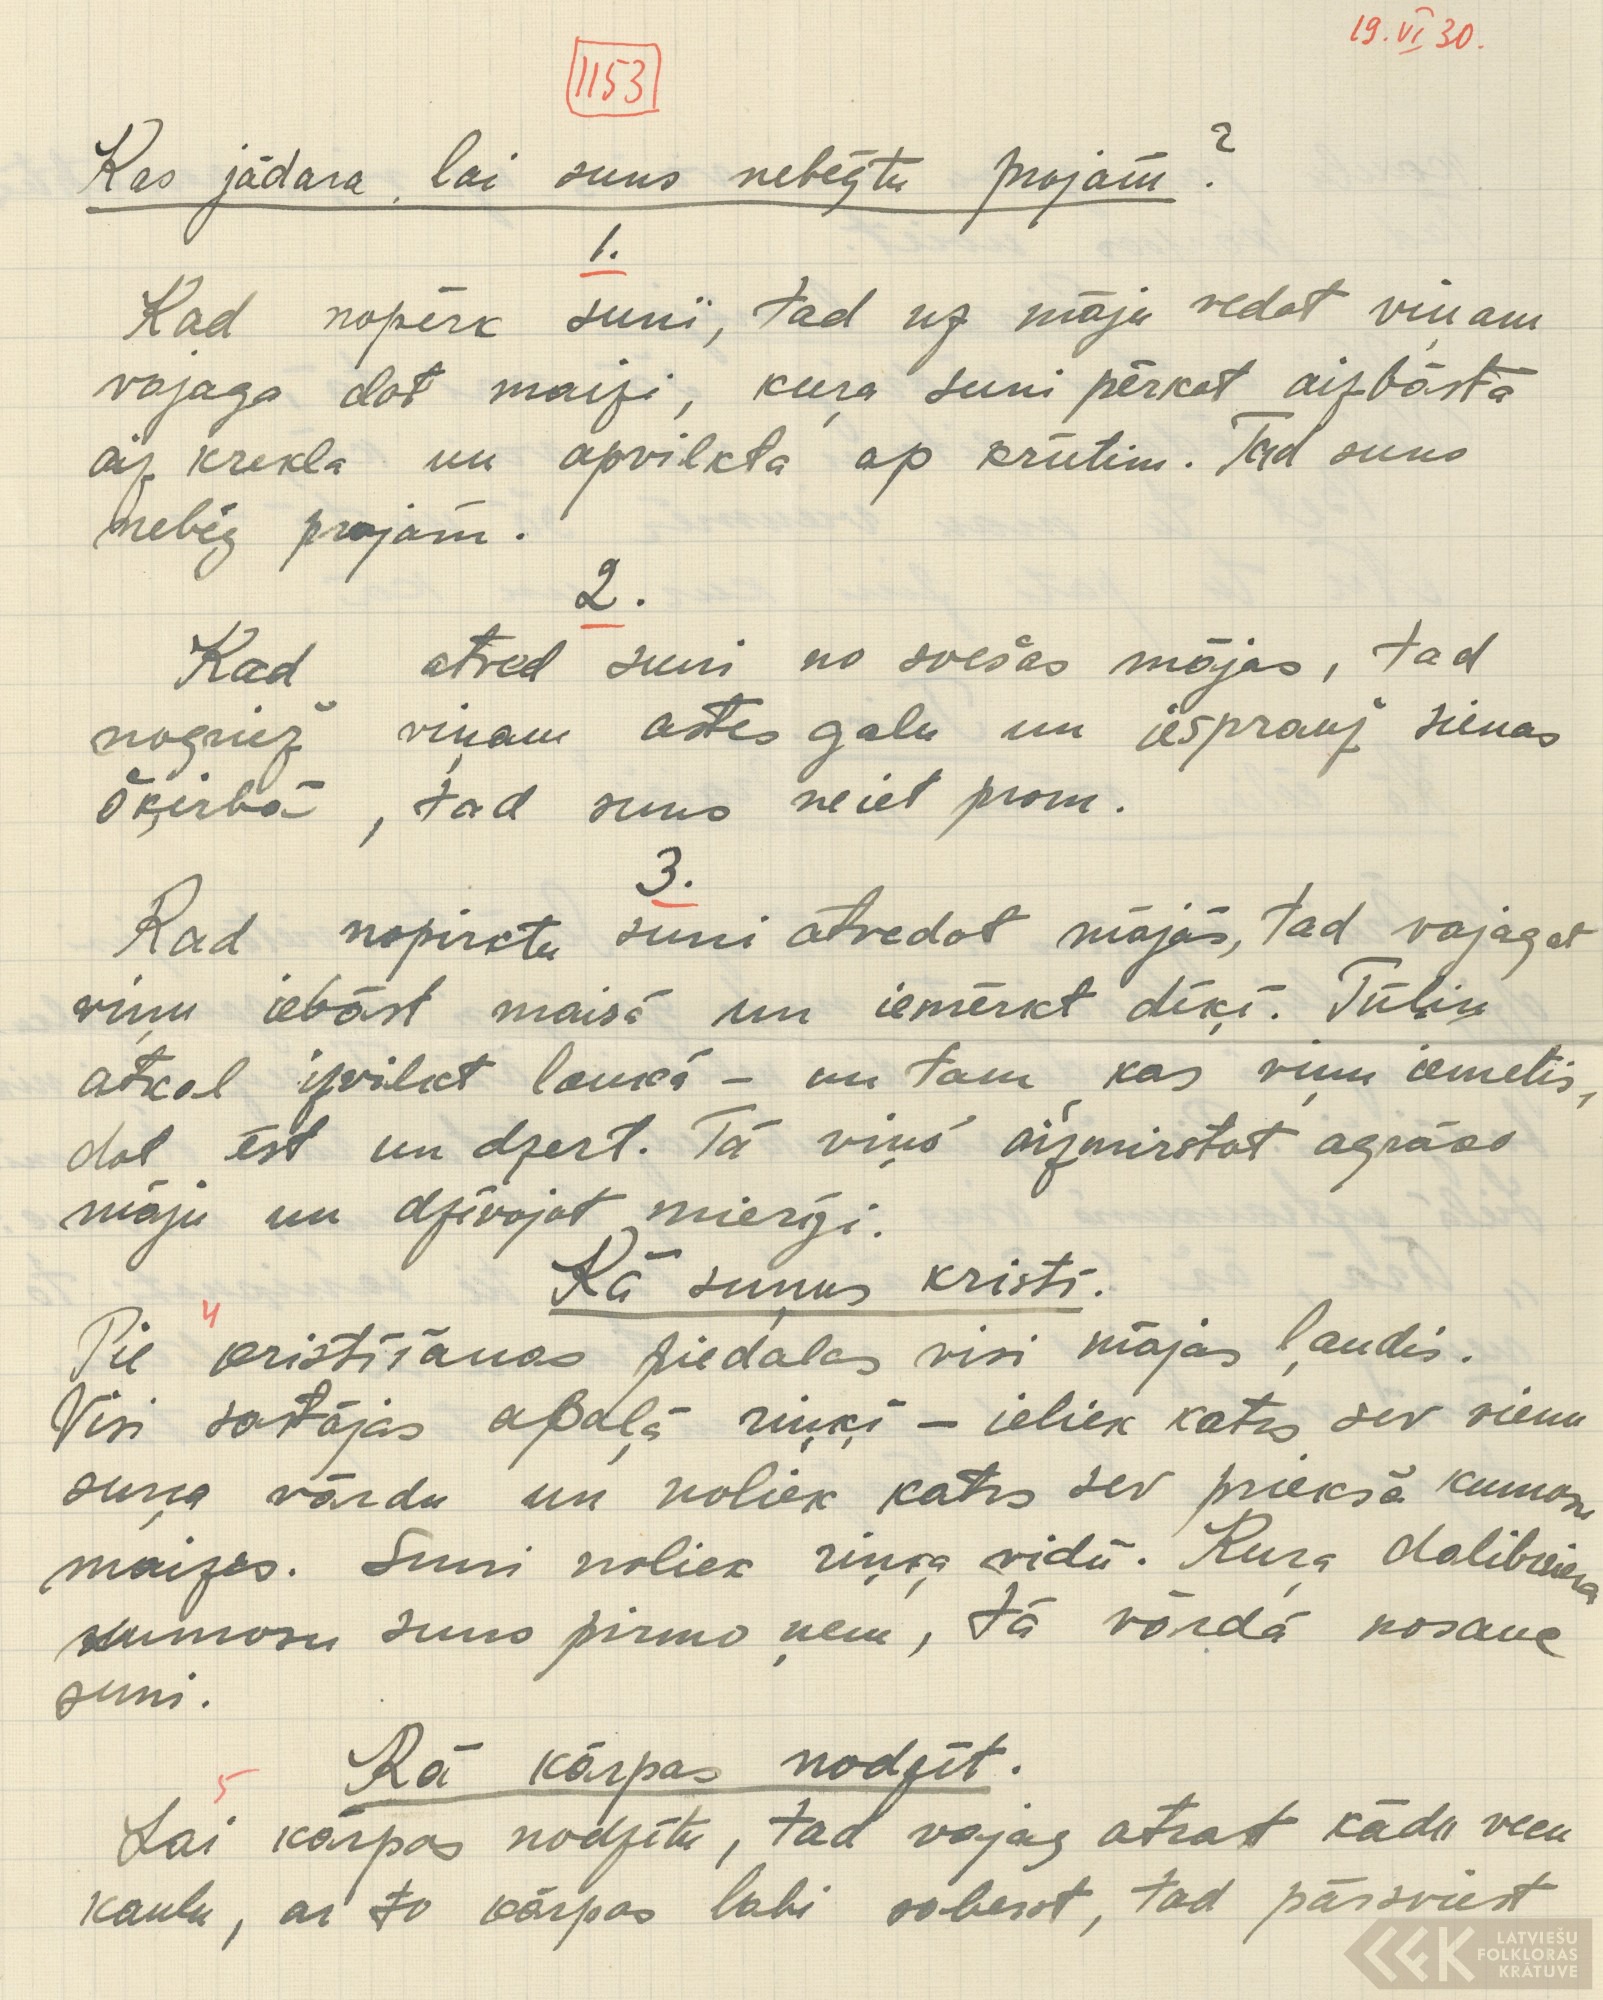 19. VI 30.
1153
Kas jādara, lai suns nebēgtu projām?
1.
Kad nopērk suni, tad uz māju vedot viņam
vajaga dot maizi, kuŗa suni pērkot aizbāsta
aiz krekla un apvilkta ap krūtim. Tad suns
nebēg projām.
2.
Kad atved suni no svešas mājas, tad
nogriež viņam astes galu un iesprauž sienas
šķirbā, tad suns neiet prom.
3.
Kad nopirktu suni atvedot mājās, tad vajagot
viņu iebāst maisā un iemērkt dīķī. Tūliņ
atkal izvilkt laukā – un tam kas viņu iemetis,
dot ēst un dzert. Tā viņš aizmirstot agrāko
māju un dzīvojot mierīgi.
Kā suņus kristī.
4
Pie kristīšanas piedalas visi mājas ļaudis.
Visi sastājas apaļā riņķī – ieliek katrs sev vienu
suņa vārdu un noliek katrs sev priekšā kumosu
maizes. Suni noliek riņķa vidū. Kuŗa dalibnieka
kumosu suns pirmo ņem, tā vārdā nosauc
suni.
Kā kārpas nodzīt.
5
Lai kārpas nodzītu, tad vajag atrast kādu vecu
kaulu, ar to kārpas labi saberst, tad pārsviest
LATVIEŠU
FOLKLORAS
KRĀTUVE